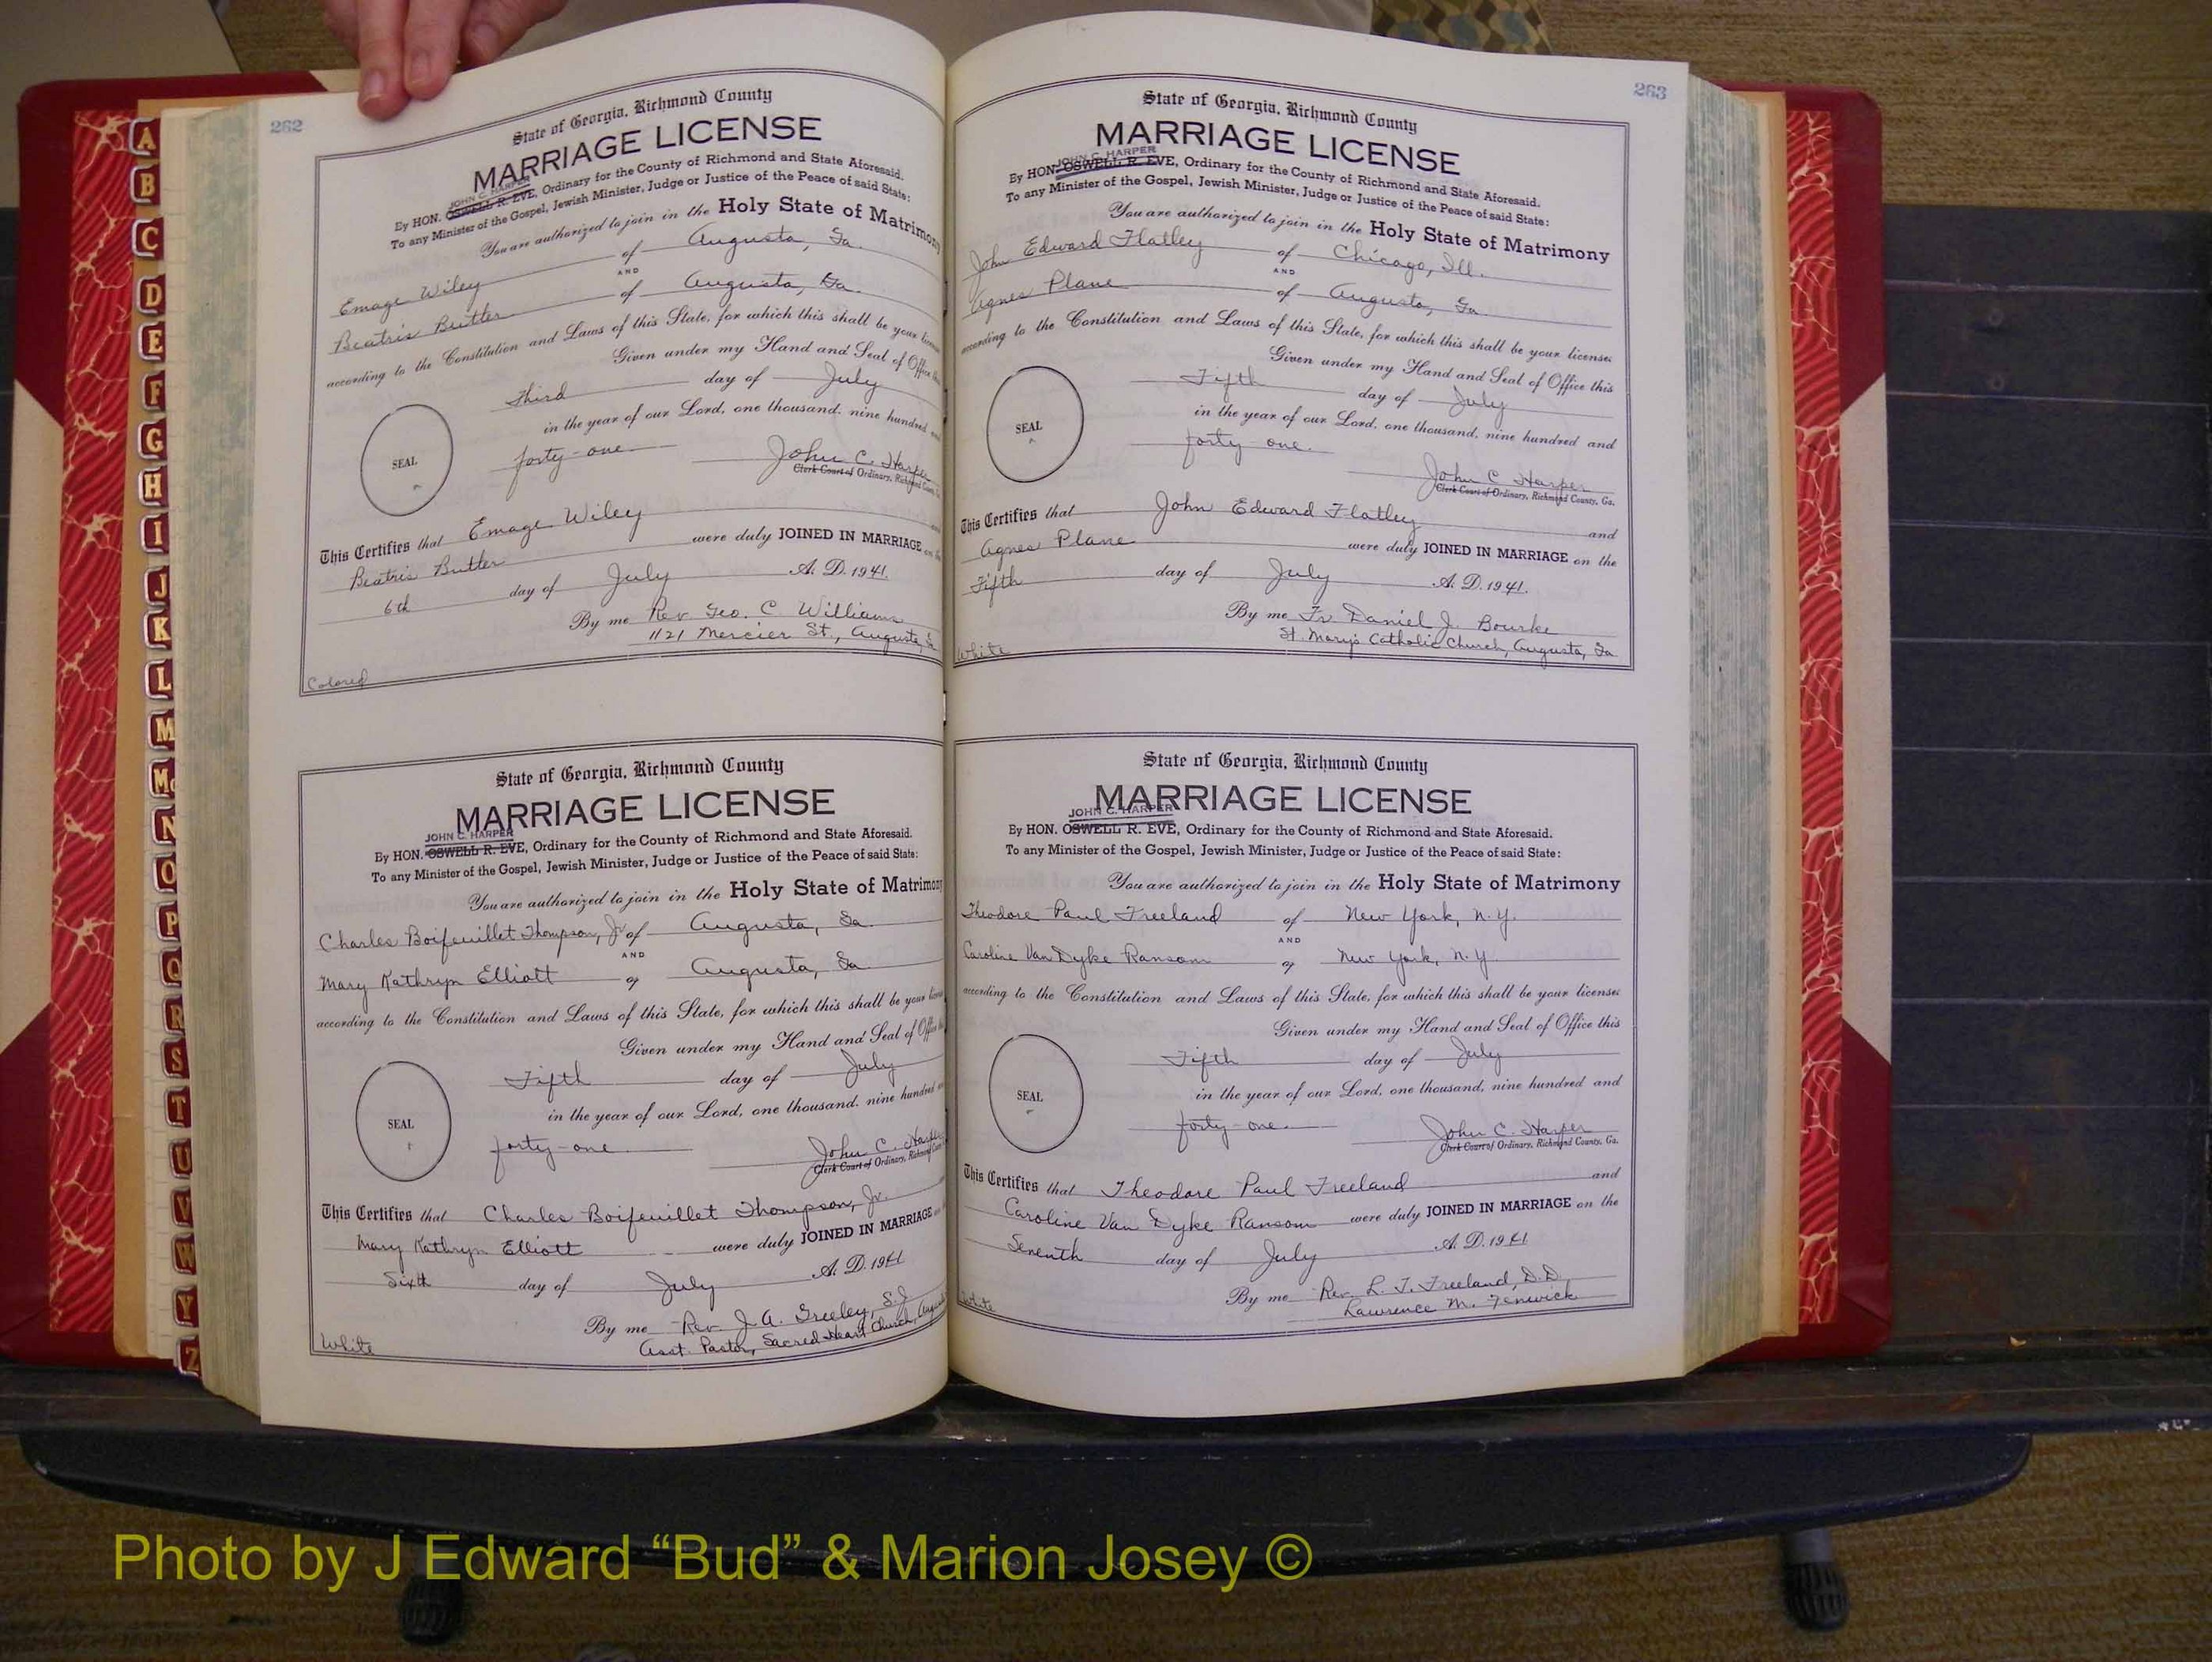 262
State of Georgia, Richmond County
MARRIAGE LICENSE
JOHN C. HARPER
By HON. OSWELL R. EVE, Ordinary for the County of Richmond and State Aforesaid.
To any Minister of the Gospel, Jewish Minister, Judge or Justice of the Peace of said State:
You are authorized to join in the Holy State of Matrimony
Emage Wiley of Augusta, Ga.
AND
Beatris Butler of Augusta, Ga.
according to the Constitution and Laws of this State, for which this shall be your
Given under my Hand and Seal of Office
Third day of July
in the year of our Lord, one thousand, nine hundred
SEAL
forty-one
John C. Harper
Clerk Court of Ordinary, Richmond
This Certifies that Emage Wiley
Beatris Butler were duly JOINED IN MARRIAGE
6th day of July A. D. 1941.
By me Rev. Geo. C. Williams
1121 Mercier St., Augusta,
Colored
State of Georgia, Richmond County
MARRIAGE LICENSE
JOHN C. HARPER
By HON. OSWELL R. EVE, Ordinary for the County of Richmond and State Aforesaid.
To any Minister of the Gospel, Jewish Minister, Judge or Justice of the Peace of said State:
You are authorized to join in the Holy State of Matrimony
Charles Boifeuillet Thompson, Jr. of Augusta, Ga.
AND
Mary Kathryn Elliott of Augusta, Ga.
according to the Constitution and Laws of this State, for which this shall be your
Given under my Hand and Seal of Office
Fifth day of July
in the year of our Lord, one thousand, nine hundred
SEAL
forty-one
John C. Harper
Clerk Court of Ordinary, Richmond
This Certifies that Charles Boifeuillet Thompson, Jr.
Mary Kathryn Elliott were duly JOINED IN MARRIAGE
Sixth day of July A. D. 1941
By me Rev. J. A. Greeley, S.J.
Asst. Pastor, Sacred Heart Church, Augusta
White
263
State of Georgia, Richmond County
MARRIAGE LICENSE
JOHN C. HARPER
By HON. OSWELL R. EVE, Ordinary for the County of Richmond and State Aforesaid.
To any Minister of the Gospel, Jewish Minister, Judge or Justice of the Peace of said State:
You are authorized to join in the Holy State of Matrimony
John Edward Flatley of Chicago, Ill.
AND
Agnes Plane of Augusta, Ga.
according to the Constitution and Laws of this State, for which this shall be your license:
Given under my Hand and Seal of Office this
Fifth day of July
in the year of our Lord, one thousand, nine hundred and
SEAL
forty-one.
John C Harper
Clerk Court of Ordinary, Richmond County, Ga.
This Certifies that John Edward Flatley and
Agnes Plane were duly JOINED IN MARRIAGE on the
Fifth day of July A. D. 1941.
By me Fr Daniel J. Bourke
St. Mary's Catholic Church, Augusta, Ga
White
State of Georgia, Richmond County
MARRIAGE LICENSE
JOHN C. HARPER
By HON. OSWELL R. EVE, Ordinary for the County of Richmond and State Aforesaid.
To any Minister of the Gospel, Jewish Minister, Judge or Justice of the Peace of said State:
You are authorized to join in the Holy State of Matrimony
Theodore Paul Freeland of New York, N.Y.
AND
Caroline Van Dyke Ransom of New York, N.Y.
according to the Constitution and Laws of this State, for which this shall be your license:
Given under my Hand and Seal of Office this
Fifth day of July
in the year of our Lord, one thousand, nine hundred and
SEAL
forty-one.
John C. Harper
Clerk Court of Ordinary, Richmond County, Ga.
This Certifies that Theodore Paul Freeland and
Caroline Van Dyke Ransom were duly JOINED IN MARRIAGE on the
Seventh day of July A. D. 1941
By me Rev. L. T. Freeland, D.D.
Lawrence M. Fenwick
White
A
B
C
D
E
F
G
H
I
J
K
L
M
Mc
N
O
P
Q
R
S
T
U
V
W
Y
Z
Photo by J Edward “Bud” & Marion Josey ©